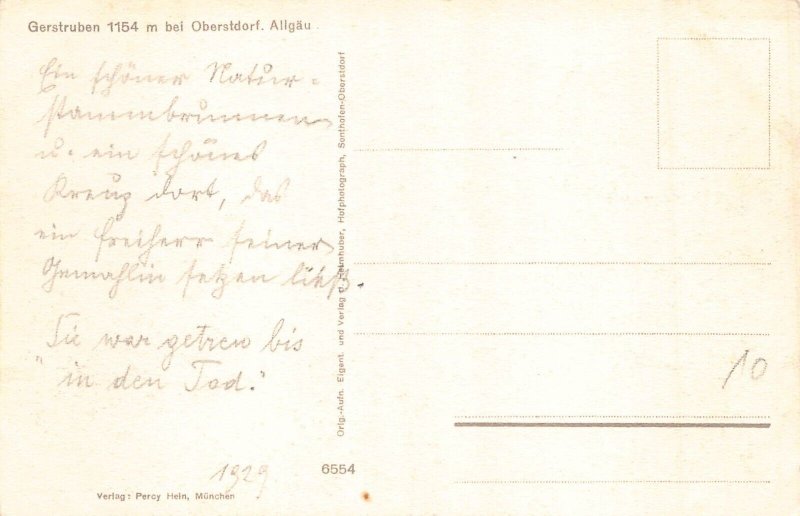 Gerstruben 1154 m bei Oberstdorf. Allgäu
Ein schöner Natur-
stammbrunnen
u. ein schönes
Kreuz dort, das
ein Freiherr seiner
Gemahlin setzen ließ.
Sie war getreu bis
"in den Tod."
1929
Verlag: Percy Hein, München
6554
Orig.-Aufn. Eigent. und Verlag v. Heimhuber, Hofphotograph, Sonthofen-Oberstdorf
10